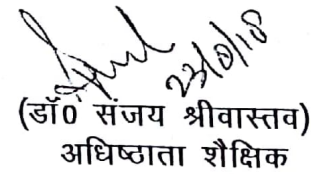 23/8/18
(डॉ0 संजय श्रीवास्तव)
अधिष्ठाता शैक्षिक